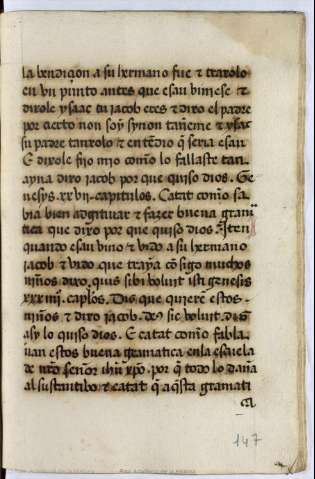 la bendiçion a su hermano fue τ traxolo
en vn punto antes que esau viniese τ
dixole ysaac tu jacob eres τ dixo el padre
por cierto non soy synon tañeme τ ysac
su padre tanxolo τ entẽdio q̃ seria esau
E dixole fijo mjo commo lo fallaste tan
ayna dixo jacob por que quiso dios. Ge
nesys. xxvij. capitulos. Catat commo sa
bia bien adgetiuar τ fazer buena grama
tica que dixo por que quiso dios. Iten
quando esau vino τ vido a su hermano
jacob τ vido que traya cõsigo muchos
niños dixo, quis sibi volunt isti genesis
xxxiij. caplos. Dis que quierẽ estos
niños τ dixo jacob. deꝰ sic voluit.
asy lo quiso dios. E catat commo fabla
uan estos buena gramatica en la escuela
de nr̃o señor ihũ xp̃o. por q̃ todo lo dauã
al sustantiuo τ catat q̃ aq̃sta gramati
ca
147